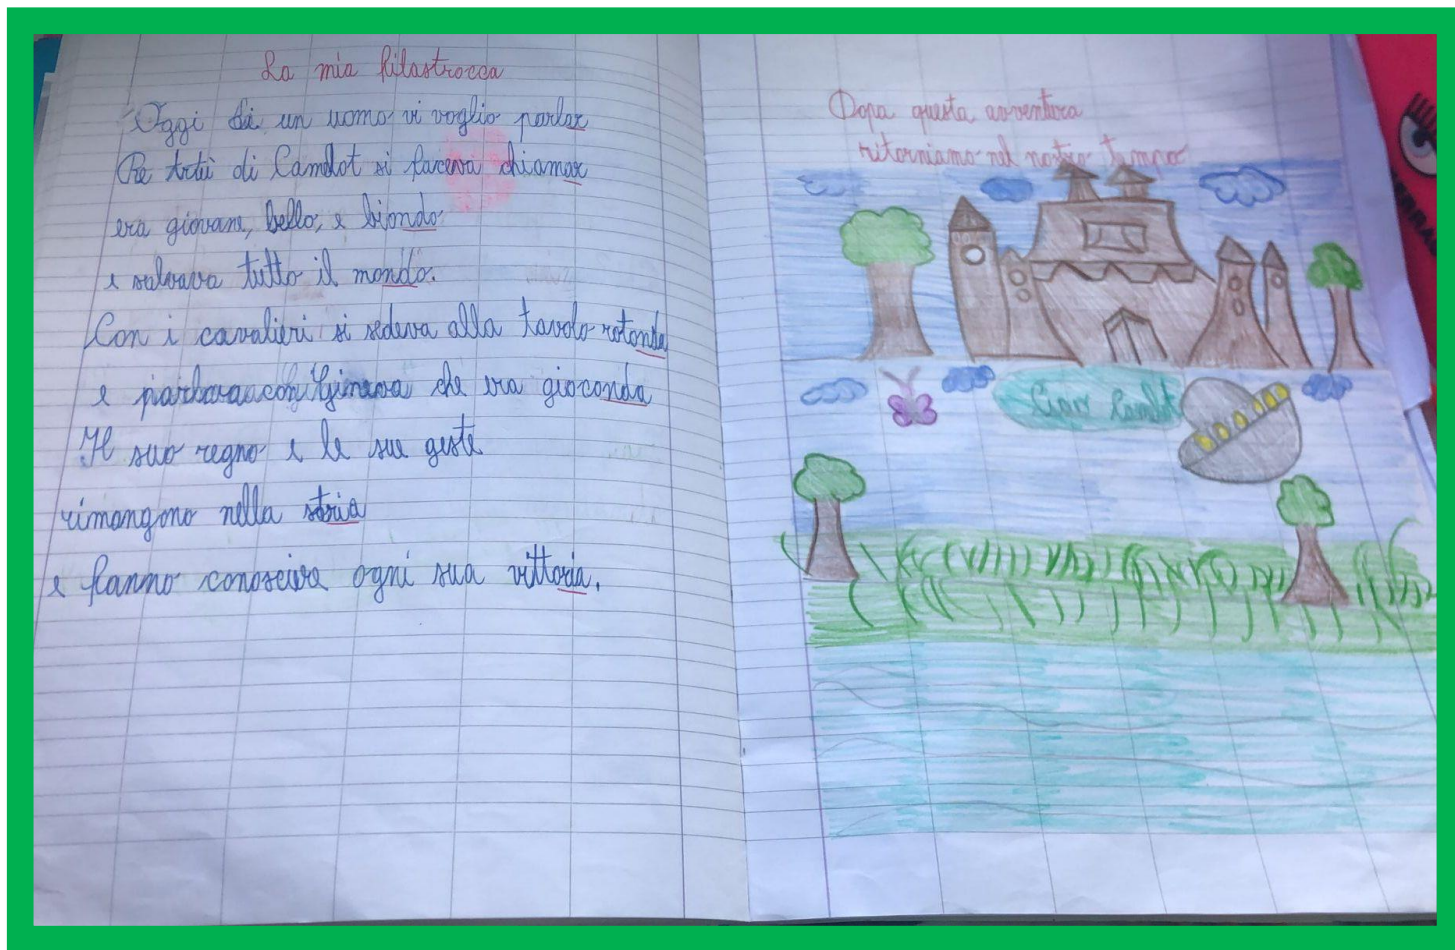 La mia filastrocca
Oggi di un uomo vi voglio parlar
Re Artù di Camelot si faceva chiamar
era giovane, bello, e biondo
e salvava tutto il mondo.
Con i cavalieri si sedeva alla tavolo rotonda
e parlava con Ginevra che era gioconda
Il suo regno e le sue gesta
rimangono nella storia
e fanno conoscere ogni sua vittoria.
Dopo questa avventura
ritorniamo nel nostro tempo
Ciao Camelot